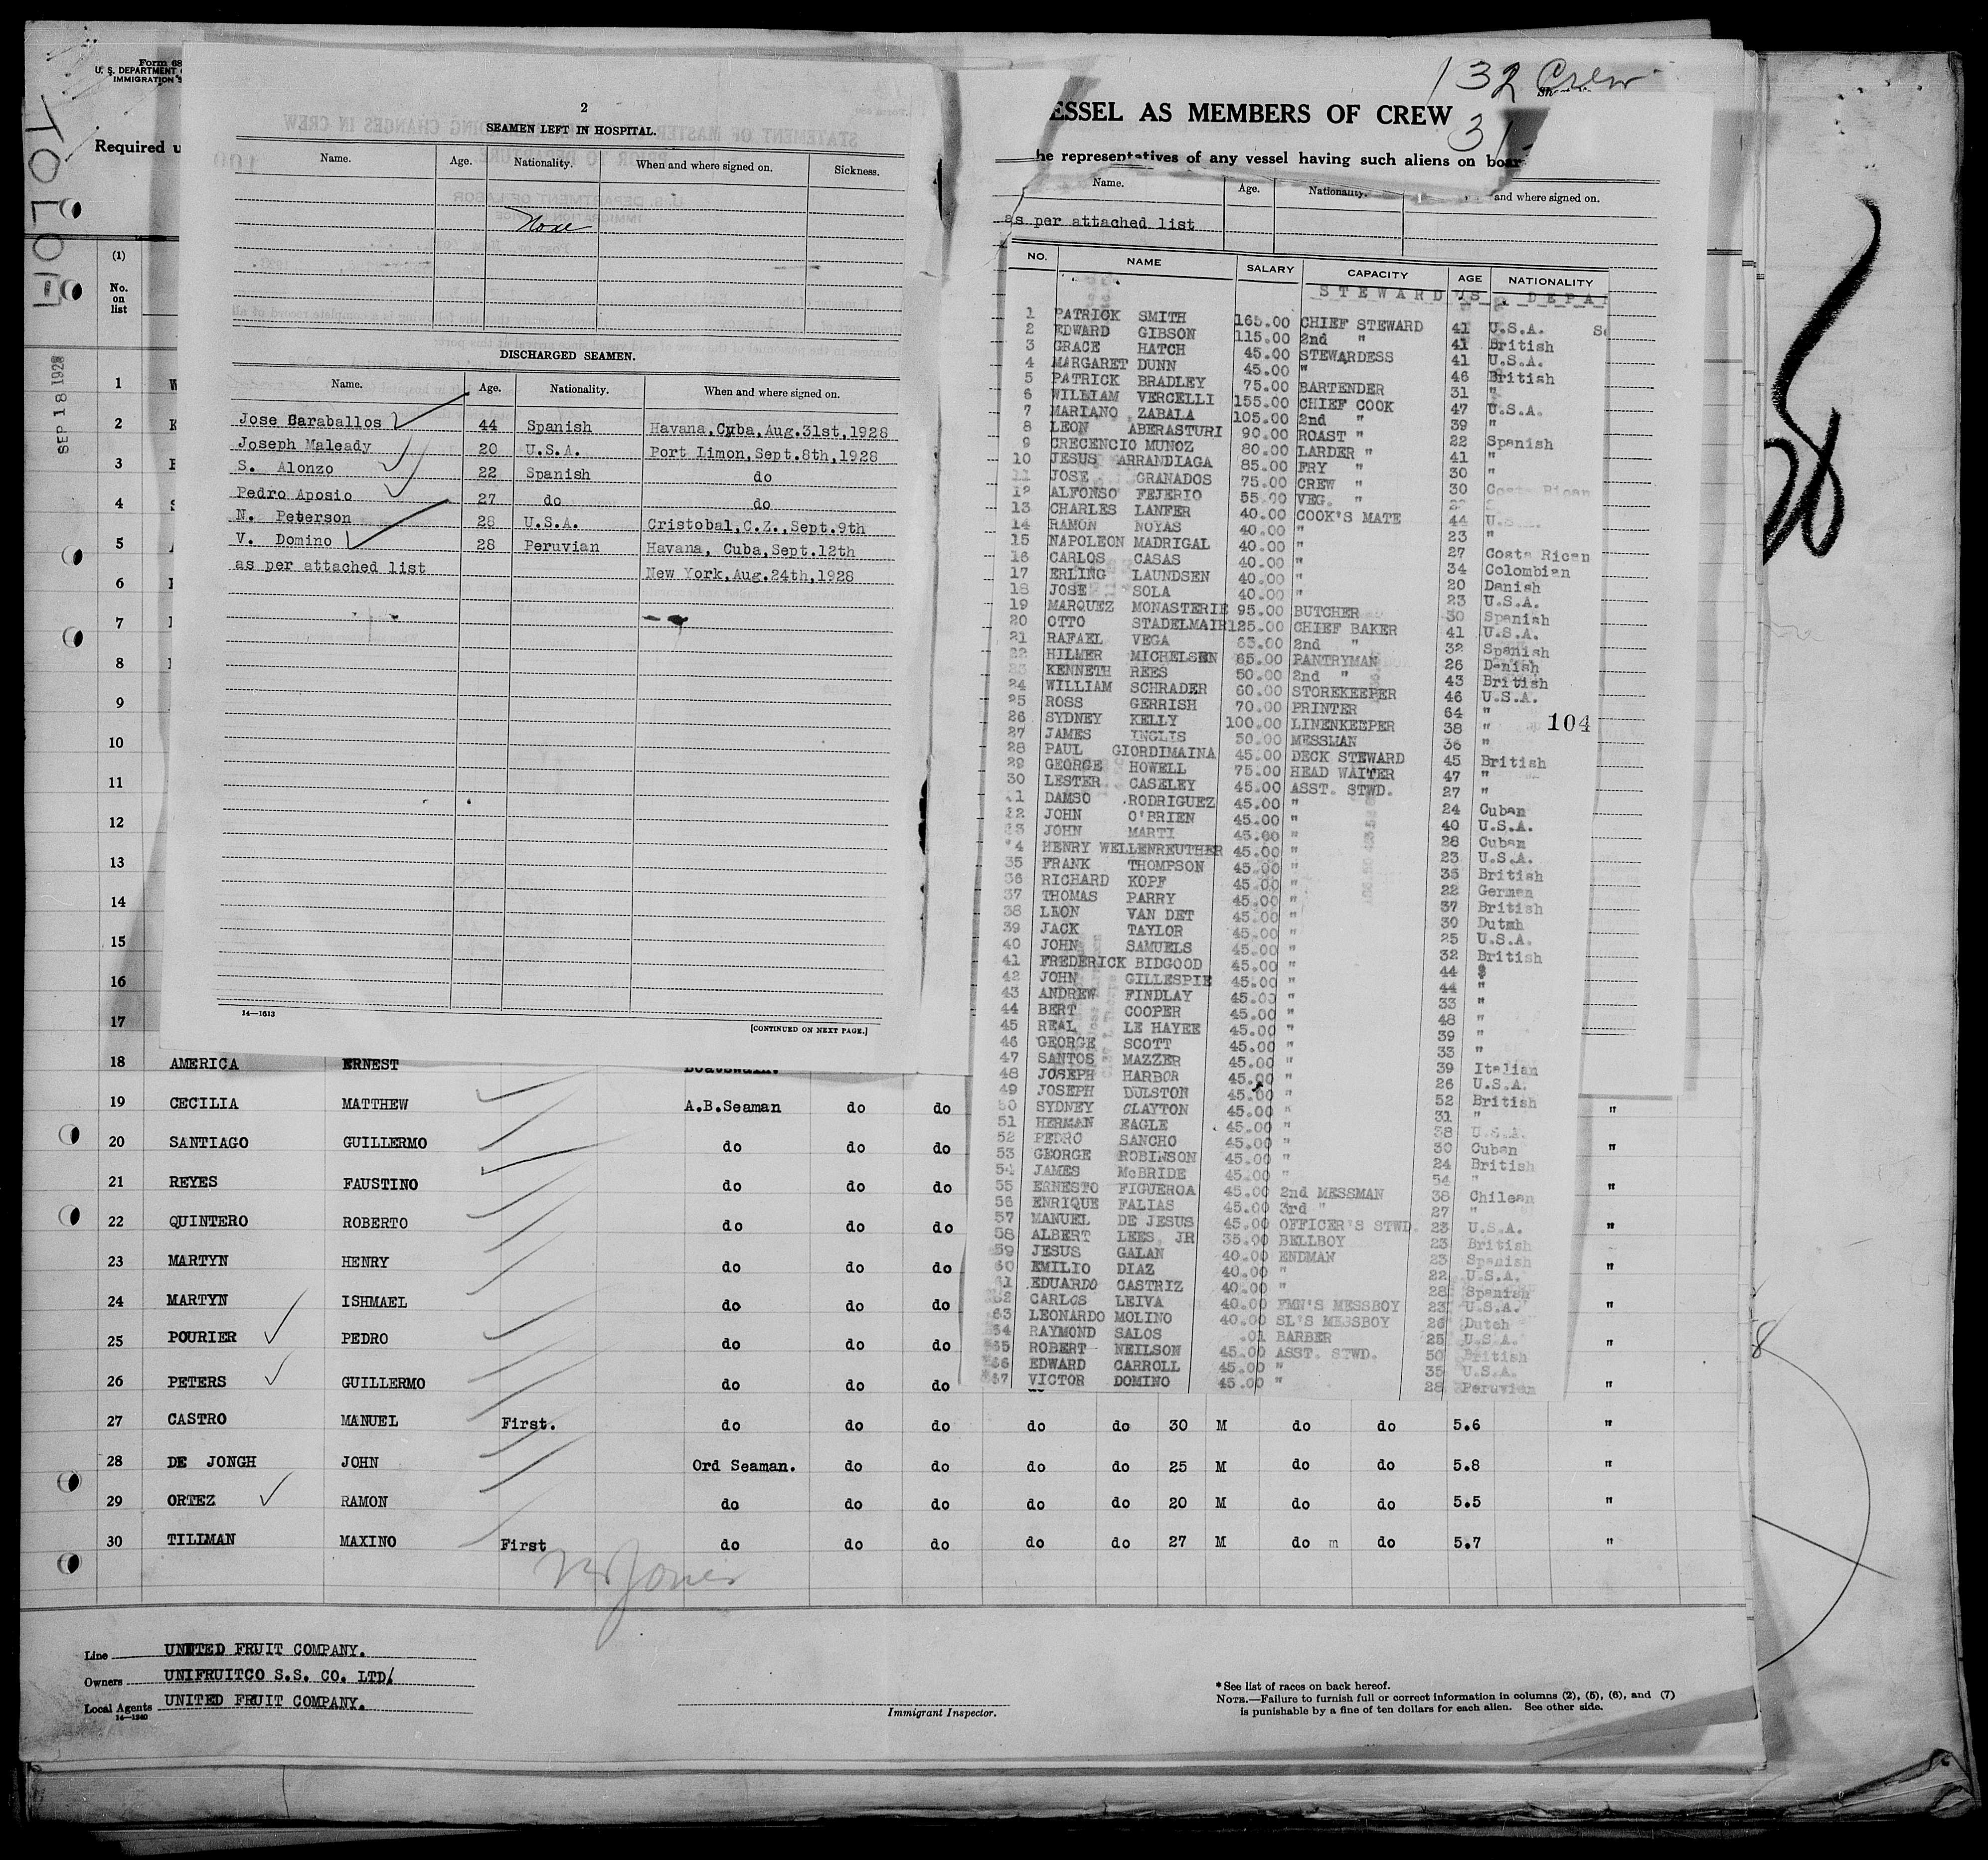 Form 68
U. S. DEPARTMENT
IMMIGRATION
Required u
(1)
No.
on
list
SEP 18 1928
1
2
3
4
5
6
7
8
9
10
11
12
13
14
15
16
17
2
SEAMEN LEFT IN HOSPITAL.
Name. Age. Nationality. When and where signed on. Sickness.
None
DISCHARGED SEAMEN.
Name. Age. Nationality. When and where signed on.
Jose Caraballos 44 Spanish Havana,Cuba,Aug.31st,1928
Joseph Maleady 20 U.S.A. Port Limon,Sept.8th,1928
S. Alonzo 22 Spanish do
Pedro Aposio 27 do do
N. Peterson 28 U.S.A. Cristobal,C.Z.,Sept.9th
V. Domino 28 Peruvian Havana, Cuba,Sept.12th
as per attached list New York,Aug.24th,1928
14—1613 [CONTINUED ON NEXT PAGE.]
132 Crew
ESSEL AS MEMBERS OF CREW
31
he representatives of any vessel having such aliens on boar
Name. Age. Nationality. and where signed on.
as per attached list
NO. NAME SALARY CAPACITY AGE NATIONALITY
STEWARD'S DEPA
1 PATRICK SMITH 165.00 CHIEF STEWARD 41 U.S.A.
2 EDWARD GIBSON 115.00 2nd " 41 British
3 GRACE HATCH 45.00 STEWARDESS 41 U.S.A.
4 MARGARET DUNN 45.00 " 46 British
5 PATRICK BRADLEY 75.00 BARTENDER 31 "
6 WILLIAM VERCELLI 155.00 CHIEF COOK 47 U.S.A.
7 MARIANO ZABALA 105.00 2nd " 39 "
8 LEON ABERASTURI 90.00 ROAST " 22 Spanish
9 CRECENCIO MUNOZ 80.00 LARDER " 41 "
10 JESUS ARRANDIAGA 85.00 FRY " 30 "
11 JOSE GRANADOS 75.00 CREW " 30 Costa Rican
12 ALFONSO FEJERIO 55.00 VEG. "
13 CHARLES LANFER 40.00 COOK'S MATE 44 U.S.A.
14 RAMON NOYAS 40.00 " 23 "
15 NAPOLEON MADRIGAL 40.00 " 27 Costa Rican
16 CARLOS CASAS 40.00 " 34 Colombian
17 ERLING LAUNDSEN 40.00 " 20 Danish
18 JOSE SOLA 40.00 " 23 U.S.A.
19 MARQUEZ MONASTERIE 95.00 BUTCHER 30 Spanish
20 OTTO STADELMAIR 125.00 CHIEF BAKER 41 U.S.A.
21 RAFAEL VEGA 65.00 2nd " 32 Spanish
22 HILMER MICHELSEN 65.00 PANTRYMAN 26 Danish
23 KENNETH REES 50.00 2nd " 43 British
24 WILLIAM SCHRADER 60.00 STOREKEEPER 46 U.S.A.
25 ROSS GERRISH 70.00 PRINTER 64 "
26 SYDNEY KELLY 100.00 LINENKEEPER 38 " 104
27 JAMES INGLIS 50.00 MESSMAN 36 "
28 PAUL GIORDIMAINA 45.00 DECK STEWARD 45 British
29 GEORGE HOWELL 75.00 HEAD WAITER 47 "
30 LESTER CASELEY 45.00 ASST. STWD. 27 "
31 DAMSO RODRIGUEZ 45.00 " 24 Cuban
32 JOHN O'BRIEN 45.00 " 40 U.S.A.
33 JOHN MARTI 45.00 " 28 Cuban
34 HENRY WELLENREUTHER 45.00 " 23 U.S.A.
35 FRANK THOMPSON 45.00 " 35 British
36 RICHARD KOPF 45.00 " 22 German
37 THOMAS PARRY 45.00 " 37 British
38 LEON VAN DET 45.00 " 30 Dutch
39 JACK TAYLOR 45.00 " 25 U.S.A.
40 JOHN SAMUELS 45.00 " 32 British
41 FREDERICK BIDGOOD 45.00 " 44 "
42 JOHN GILLESPIE 45.00 " 44 "
43 ANDREW FINDLAY 45.00 " 33 "
44 BERT COOPER 45.00 " 48 "
45 REAL LE HAYEE 45.00 " 39 "
46 GEORGE SCOTT 45.00 " 33 "
47 SANTOS MAZZER 45.00 " 39 Italian
48 JOSEPH HARBOR 45.00 " 26 U.S.A.
49 JOSEPH DULSTON 45.00 " 52 British
50 SYDNEY CLAYTON 45.00 " 31 "
51 HERMAN EAGLE 45.00 " 38 U.S.A.
52 PEDRO SANCHO 45.00 " 30 Cuban
53 GEORGE ROBINSON 45.00 " 24 British
54 JAMES McBRIDE 45.00 " 54 "
55 ERNESTO FIGUEROA 45.00 2nd MESSMAN 38 Chilean
56 ENRIQUE FALIAS 45.00 3rd " 27 "
57 MANUEL DE JESUS 45.00 OFFICER'S STWD. 23 U.S.A.
58 ALBERT LEES, JR 35.00 BELLBOY 23 British
59 JESUS GALAN 40.00 ENDMAN 23 Spanish
60 EMILIO DIAZ 40.00 " 22 U.S.A.
61 EDUARDO CASTRIZ 40.00 " 28 Spanish
62 CARLOS LEIVA 40.00 FMN'S MESSBOY 23 U.S.A.
63 LEONARDO MOLINO 40.00 SL'S MESSBOY 26 Dutch
64 RAYMOND SALOS .01 BARBER 25 U.S.A.
65 ROBERT NEILSON 45.00 ASST. STWD. 50 British
66 EDWARD CARROLL 45.00 " 35 U.S.A.
67 VICTOR DOMINO 45.00 " 28 Peruvian
18 AMERICA ERNEST Boatswain.
19 CECILIA MATTHEW A.B.Seaman do do "
20 SANTIAGO GUILLERMO do do do "
21 REYES FAUSTINO do do do "
22 QUINTERO ROBERTO do do do "
23 MARTYN HENRY do do do "
24 MARTYN ISHMAEL do do do "
25 POURIER PEDRO do do do "
26 PETERS GUILLERMO do do do "
27 CASTRO MANUEL First. do do do do do 30 M do do 5.6 "
28 DE JONGH JOHN Ord Seaman. do do do do 25 M do do 5.8 "
29 ORTEZ RAMON do do do do do 20 M do do 5.5 "
30 TILLMAN MAXINO First do do do do do 27 M do m do 5.7 "
Jones
Line UNITED FRUIT COMPANY.
Owners UNIFRUITCO S.S. CO. LTD.
Local Agents UNITED FRUIT COMPANY.
14—1240
Immigrant Inspector.
* See list of races on back hereof.
NOTE.—Failure to furnish full or correct information in columns (2), (5), (6), and (7)
is punishable by a fine of ten dollars for each alien. See other side.